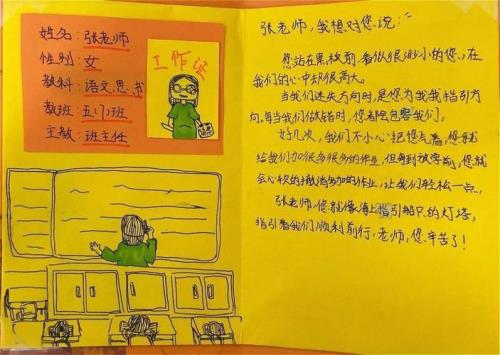 姓名：张老师
性别：女
教科：语文、思、书
教班：五（7）班
主教：班主任
工作证
张老师，我想对您说：
您站在黑板前，看似很渺小的您，在
我们的心中却很高大。
当我们迷失方向时，是您为我们指引方
向。每当我们做错时，您都会包容我们。
好几次，我们不小心把您气着，您就
给我们加很多很多的作业，但每到放学前，您就
会心软的撤消多加的作业，让我们轻松一点。
张老师，您就像海上指引船只的灯塔，
指引着我们顺利前行，老师，您辛苦了！